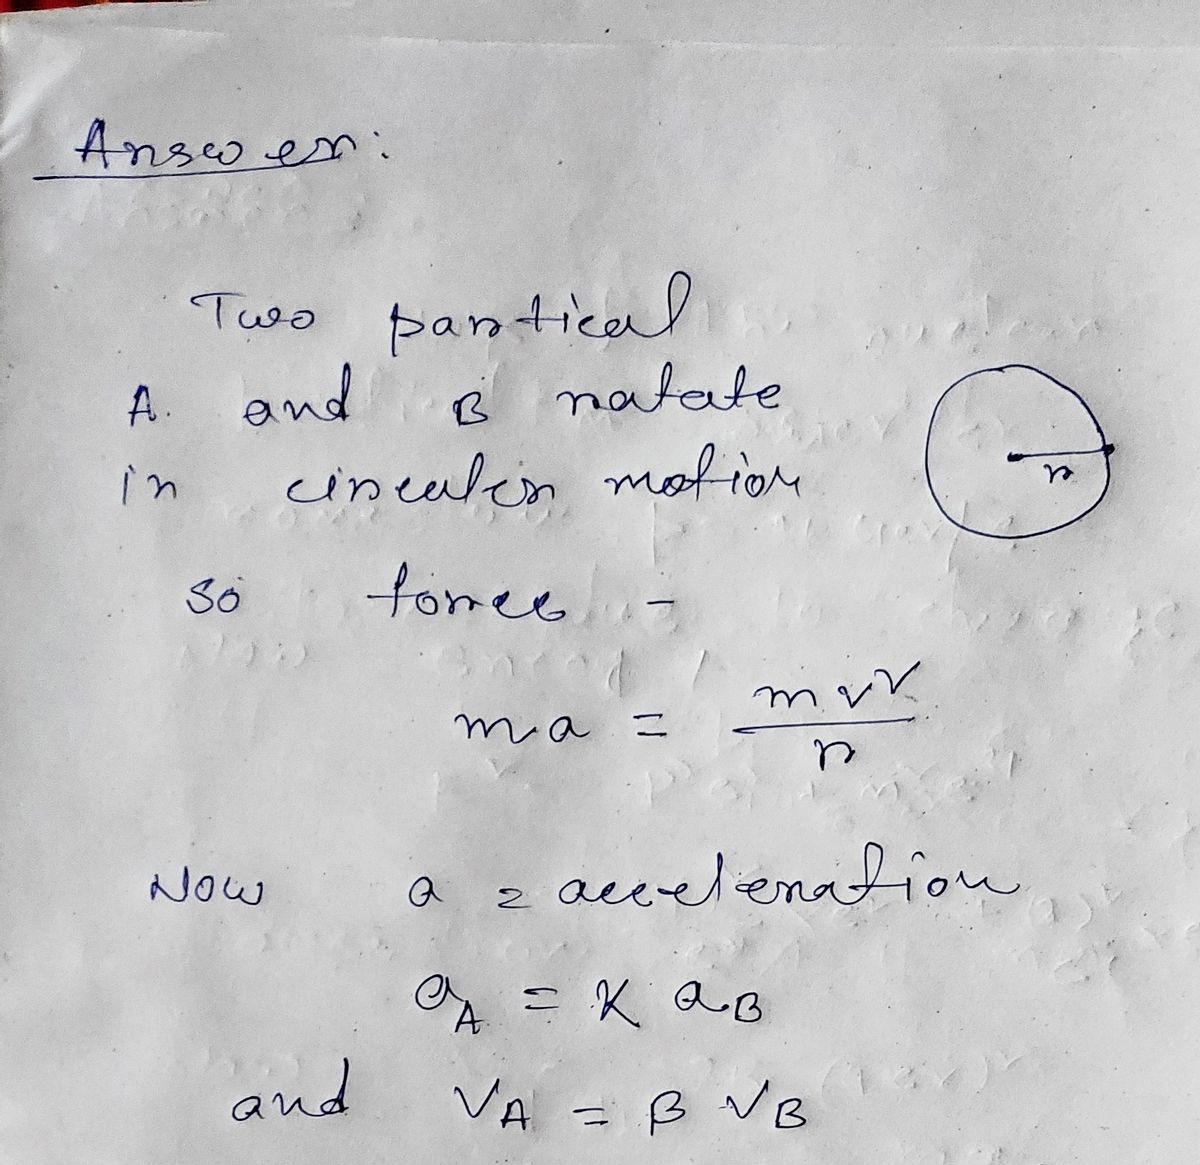 Answer:
Two partical
A. and B rotate
in circular motion
r
so force -
ma = mv²/r
Now a = acceleration
a_A = K a_B
and V_A = β V_B